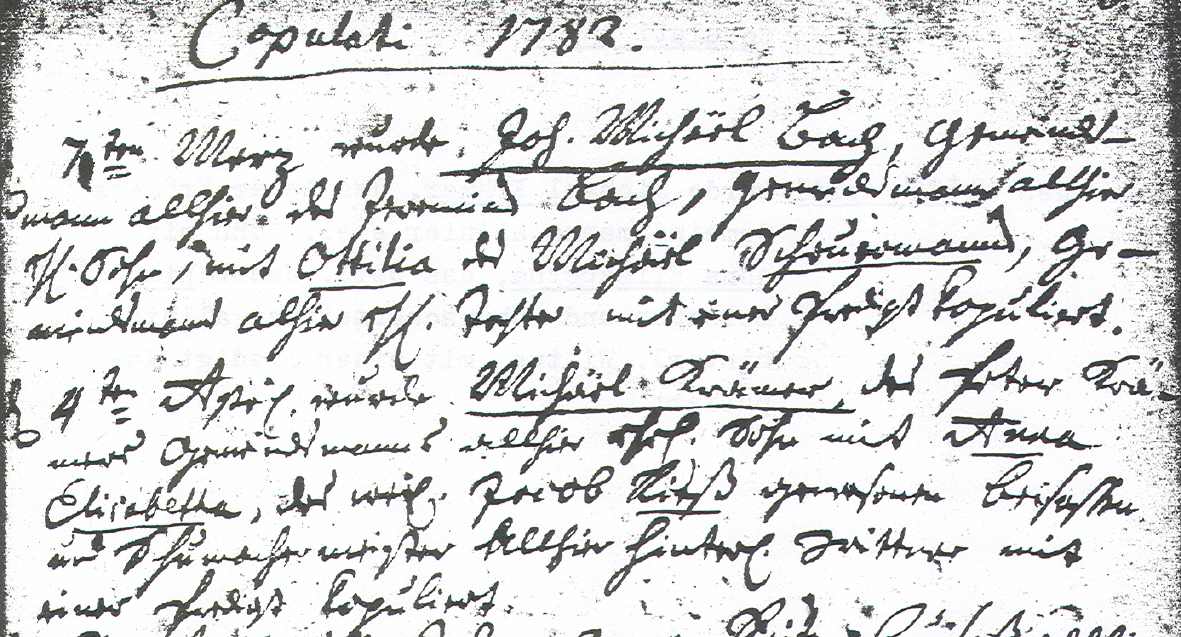 Copulati 1782.
7ten Merz wurde Joh. Michäel Bach, Gemeinds-
mann allhier des Jeremias Bach, Gemeindsmanns allhier
ehl. Sohn, mit Ottilia des Michäel Scheuermanns, Ge-
meindsmanns alhier ehl. Tochter mit einer Predigt kopuliert.
4ten April. wurde Michäel Krämer, des Peter Krä-
mers Gemeindsmanns allhier ehel. Sohn mit Anna
Elisabetha, des weil. Jacob gewesenen beisassen
und Schumachermeister Allhier hinterl. Wittwe mit
einer Predigt kopuliert.